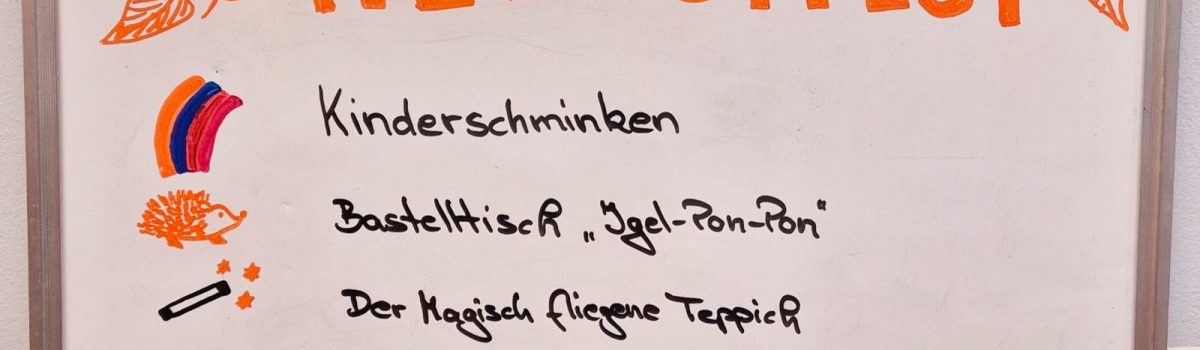 Kinderschminken
Basteltisch „Igel-Pon-Pon“
Der Magisch fliegene Teppich